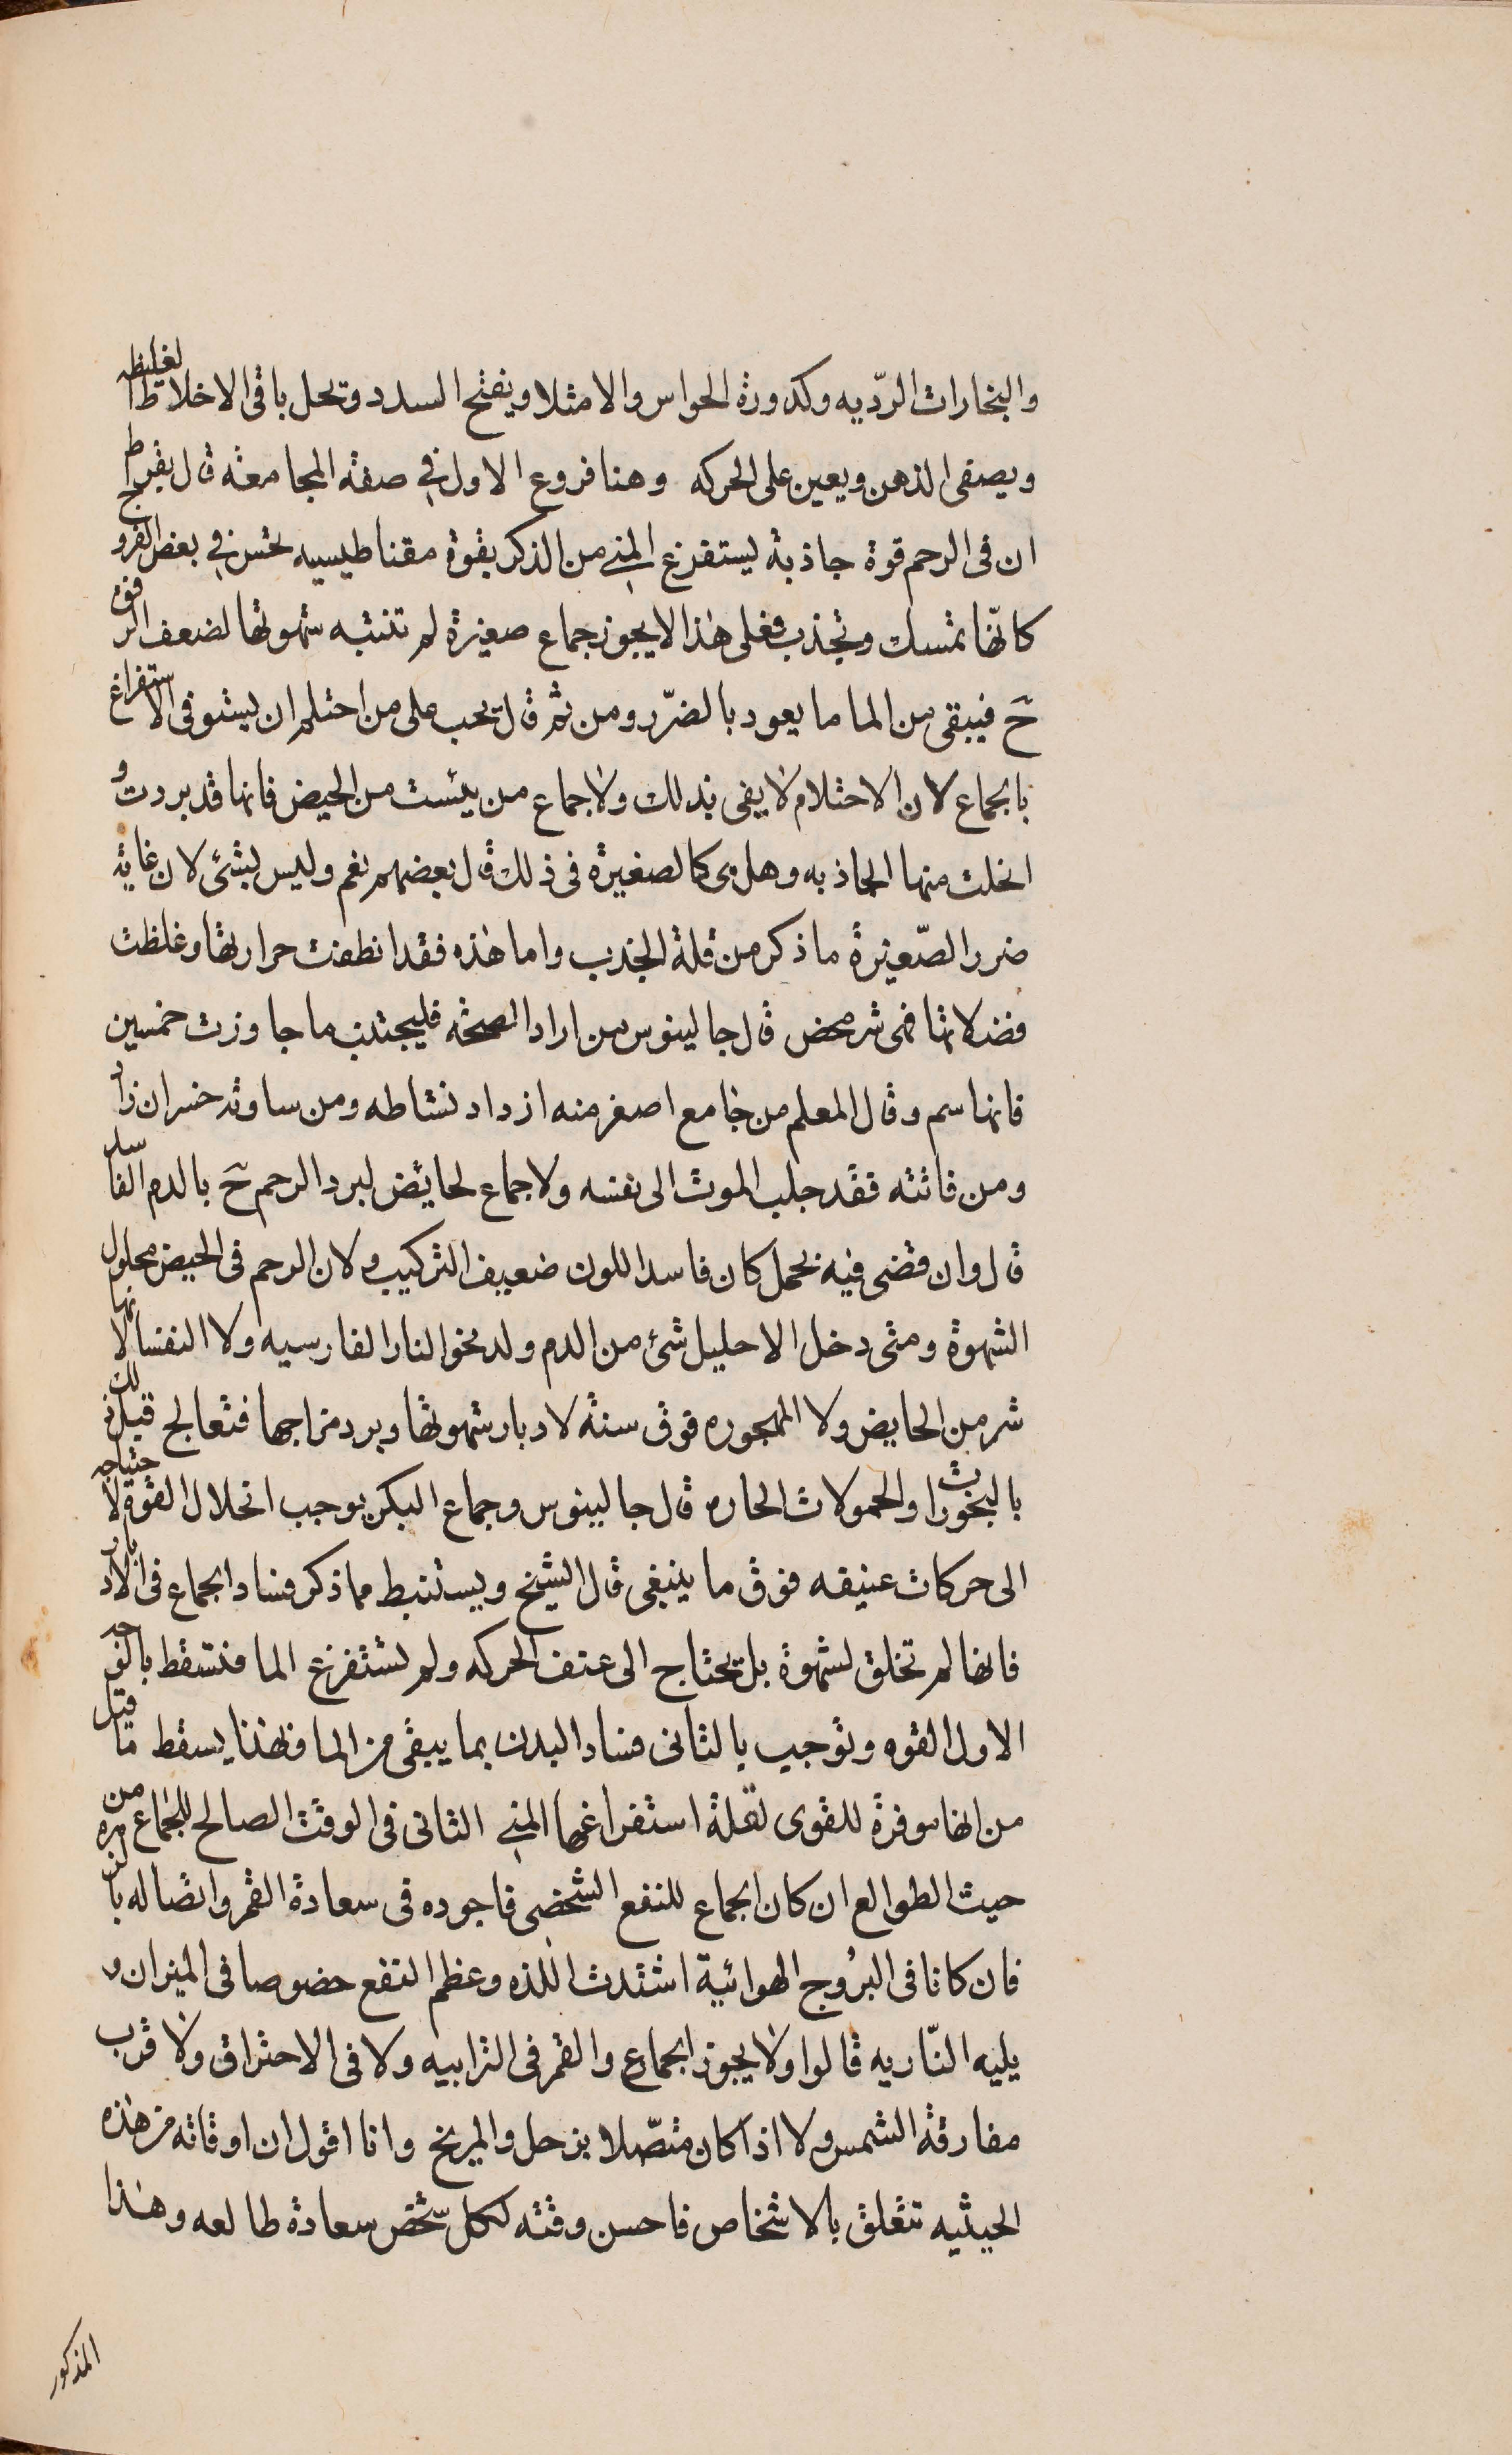 والبخارات الرّديه وكدورة الحواس والامتلا ويفتح السدد وتحل باقى الاخلاط الغليظه
ويصفى الذهن ويعين على الحركه وهنا فروع الاول في صفة المجامعة قال بقراط
ان فى الرحم قوة جاذبة ليستفرغ المني من الذكر بقوة مقناطيسيه تحس في بعض الفروج
كانها تمسك وتجذب فعلى هذا لا يجوز جماع صغيرة لم تنتبه شهوتها لضعف الرقوه
حَ فيبقى من الما ما يعود بالضرّر ومن ثم قال يجب على من احتلم ان يستوفى الاستفراغ
بالجماع لان الاحتلام لا يفى بذلك ولا جماع من يئست من الحيض فانها قد بردت و
انحلت منها الجاذبه وهل هى كالصغيرة فى ذلك قال بعضهم نعم وليس بشئ لان غاية
ضرر الصّغيرة ما ذكر من قلة الجذب واما هذه فقد انطفت حرارتها وغلظت
فضلاتها فهى شر محض قال جالينوس من اراد الصحة فليجتنب ما جاوزت خمسين
فانها سم وقال المعلم من جامع اصغر منه ازداد نشاطه ومن ساوته خسر ان زاد
ومن فاتته فقد جلب الموت الى نفسه ولا جماع لحايض لبرد الرحم حَ بالدم الفاسد
قال وان قضى فيه بحمل كان فاسد اللون ضعيف التركيب ولان الرحم فى الحيض محلول
الشهوة ومتى دخل الاحليل شئ من الدم ولد نحو النار الفارسيه ولا النفسا لانها
شر من الحايض ولا المهجوره فوق سنة لادبار شهوتها وبرد مزاجها فتعالج قبل ذلك
بالبخورات والحمولات الحاره قال جالينوس وجماع البكر يوجب انحلال القوة لاحتياجه
الى حركات عنيفه فوق ما ينبغى قال الشيخ ويستنبط مما ذكر فساد الجماع فى الادبار
فانها لم تخلق لشهوة بل يحتاج الى عنف الحركه ولم تستفرغ الما فتسقط بالوجه
الاول القوه وتوجب بالثانى فساد البدن بما يبقى من الما فبهذا يسقط ما قيل
من انها موفرة للقوى لقلة استفراغها المني الثانى فى الوقت الصالح للجماع من
حيث الطوالع ان كان الجماع للنفع الشخصى فاجوده فى سعادة القمر واتصاله بالزهره
فان كانا فى البرُوج الهوائية اشتدت اللذه وعظم النفع خصوصا فى الميزان و
يليه النّاريه قالوا ولا يجوز الجماع والقمر فى الترابيه ولا فى الاحتراق ولا قرب
مفارقة الشمس ولا اذا كان متصّلا بزحل والمريخ وانا اقول ان اوقاته من هذه
الحيثيه تتعلق بالاشخاص فاحسن وقته لكل شخص سعادة طالعه وهذا
المذكور